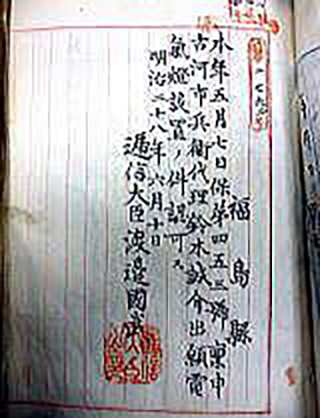 福島縣
本年五月七日保第四五三號稟申
古河市兵衛代理鈴木誠介出願電
氣燈設置ノ件認可ス
明治二十八年六月十日
遞信大臣渡邊國武